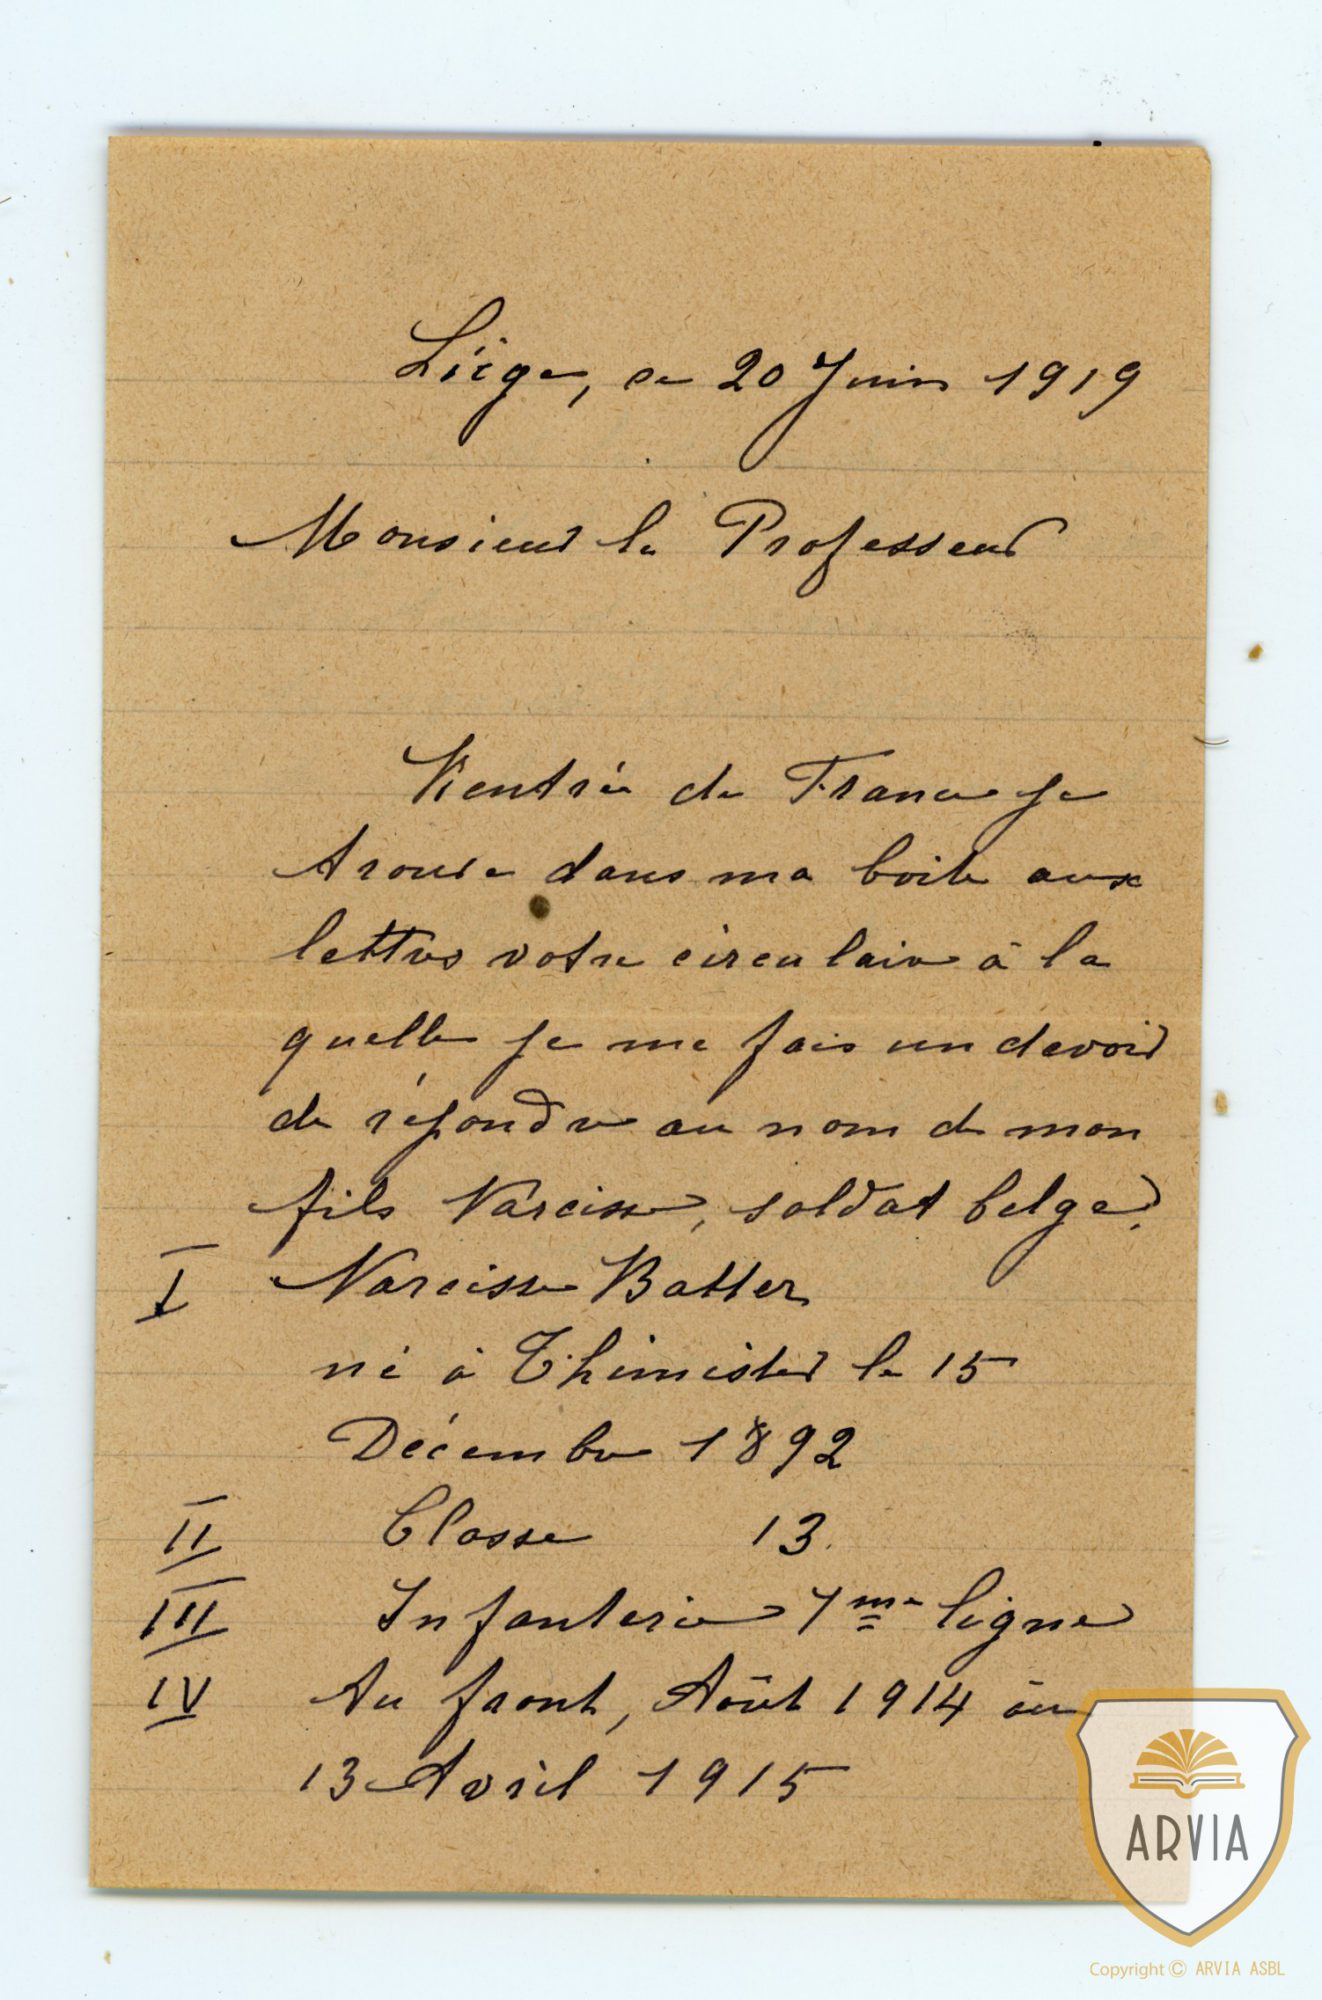 Liége, ce 20 Juin 1919
Monsieur le Professeur
Rentrée de France je
trouve dans ma boite aux
lettres votre circulaire à la
quelle je me fais un devoir
de répondre au nom de mon
fils Narcisse, soldat belge.
I Narcisse Batter
né à Thimister le 15
Décembre 1892
II Classe 13.
III Infanterie 7me ligne
IV Au front, Août 1914 au
13 Avril 1915
ARVIA
Copyright © ARVIA ASBL